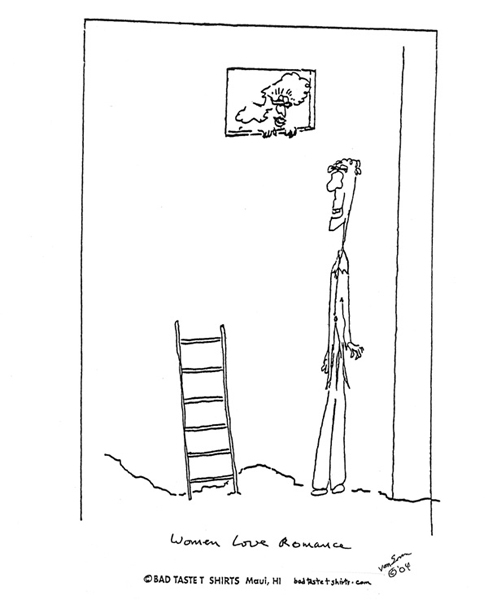 Women Love Romance
©'04
© BAD TASTE T SHIRTS Maui, HI badtastetshirts.com